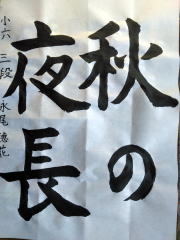 秋の
夜長
小六 三段 永尾穂花